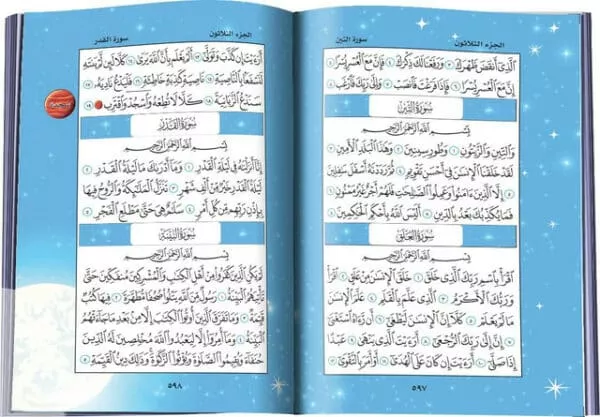 الجزء الثلاثون سورة التين
ٱلَّذِىٓ أَنقَضَ ظَهْرَكَ ٣ وَرَفَعْنَا لَكَ ذِكْرَكَ ٤ فَإِنَّ مَعَ ٱلْعُسْرِ يُسْرًا ٥
إِنَّ مَعَ ٱلْعُسْرِ يُسْرًا ٦ فَإِذَا فَرَغْتَ فَٱنصَبْ ٧ وَإِلَىٰ رَبِّكَ فَٱرْغَب ٨
سُورَةُ التِّينِ
بِسْمِ ٱللَّهِ ٱلرَّحْمَٰنِ ٱلرَّحِيمِ
وَٱلتِّينِ وَٱلزَّيْتُونِ ١ وَطُورِ سِينِينَ ٢ وَهَٰذَا ٱلْبَلَدِ ٱلْأَمِينِ ٣
لَقَدْ خَلَقْنَا ٱلْإِنسَٰنَ فِىٓ أَحْسَنِ تَقْوِيمٍ ٤ ثُمَّ رَدَدْنَٰهُ أَسْفَلَ سَٰفِلِينَ
٥ إِلَّا ٱلَّذِينَ ءَامَنُوا۟ وَعَمِلُوا۟ ٱلصَّٰلِحَٰتِ فَلَهُمْ أَجْرٌ غَيْرُ مَمْنُونٍ ٦
فَمَا يُكَذِّبُكَ بَعْدُ بِٱلدِّينِ ٧ أَلَيْسَ ٱللَّهُ بِأَحْكَمِ ٱلْحَٰكِمِينَ ٨
سُورَةُ العَلَقِ
بِسْمِ ٱللَّهِ ٱلرَّحْمَٰنِ ٱلرَّحِيمِ
ٱقْرَأْ بِٱسْمِ رَبِّكَ ٱلَّذِى خَلَقَ ١ خَلَقَ ٱلْإِنسَٰنَ مِنْ عَلَقٍ ٢ ٱقْرَأْ
وَرَبُّكَ ٱلْأَكْرَمُ ٣ ٱلَّذِى عَلَّمَ بِٱلْقَلَمِ ٤ عَلَّمَ ٱلْإِنسَٰنَ
مَا لَمْ يَعْلَمْ ٥ كَلَّآ إِنَّ ٱلْإِنسَٰنَ لَيَطْغَىٰٓ ٦ أَن رَّءَاهُ ٱسْتَغْنَىٰٓ
٧ إِنَّ إِلَىٰ رَبِّكَ ٱلرُّجْعَىٰٓ ٨ أَرَءَيْتَ ٱلَّذِى يَنْهَىٰ ٩ عَبْدًا
إِذَا صَلَّىٰٓ ١٠ أَرَءَيْتَ إِن كَانَ عَلَى ٱلْهُدَىٰٓ ١١ أَوْ أَمَرَ بِٱلتَّقْوَىٰٓ ١٢
٥٩٧
الجزء الثلاثون سورة القدر
أَرَءَيْتَ إِن كَذَّبَ وَتَوَلَّىٰٓ ١٣ أَلَمْ يَعْلَم بِأَنَّ ٱللَّهَ يَرَىٰ ١٤ كَلَّا لَئِن لَّمْ يَنتَهِ
لَنَسْفَعًۢا بِٱلنَّاصِيَةِ ١٥ نَاصِيَةٍ كَٰذِبَةٍ خَاطِئَةٍ ١٦ فَلْيَدْعُ نَادِيَهُۥ ١٧
سَنَدْعُ ٱلزَّبَانِيَةَ ١٨ كَلَّا لَا تُطِعْهُ وَٱسْجُدْ وَٱقْتَرِب ١٩
سُورَةُ القَدْرِ
بِسْمِ ٱللَّهِ ٱلرَّحْمَٰنِ ٱلرَّحِيمِ
إِنَّآ أَنزَلْنَٰهُ فِى لَيْلَةِ ٱلْقَدْرِ ١ وَمَآ أَدْرَىٰكَ مَا لَيْلَةُ ٱلْقَدْرِ ٢
لَيْلَةُ ٱلْقَدْرِ خَيْرٌ مِّنْ أَلْفِ شَهْرٍ ٣ تَنَزَّلُ ٱلْمَلَٰٓئِكَةُ وَٱلرُّوحُ فِيهَا
بِإِذْنِ رَبِّهِم مِّن كُلِّ أَمْرٍ ٤ سَلَٰمٌ هِىَ حَتَّىٰ مَطْلَعِ ٱلْفَجْرِ ٥
سُورَةُ البَيِّنَةِ
بِسْمِ ٱللَّهِ ٱلرَّحْمَٰنِ ٱلرَّحِيمِ
لَمْ يَكُنِ ٱلَّذِينَ كَفَرُوا۟ مِنْ أَهْلِ ٱلْكِتَٰبِ وَٱلْمُشْرِكِينَ مُنفَكِّينَ حَتَّىٰ
تَأْتِيَهُمُ ٱلْبَيِّنَةُ ١ رَسُولٌ مِّنَ ٱللَّهِ يَتْلُوا۟ صُحُفًا مُّطَهَّرَةً ٢ فِيهَا كُتُبٌ
قَيِّمَةٌ ٣ وَمَا تَفَرَّقَ ٱلَّذِينَ أُوتُوا۟ ٱلْكِتَٰبَ إِلَّا مِنۢ بَعْدِ مَا جَآءَتْهُمُ
ٱلْبَيِّنَةُ ٤ وَمَآ أُمِرُوٓا۟ إِلَّا لِيَعْبُدُوا۟ ٱللَّهَ مُخْلِصِينَ لَهُ ٱلدِّينَ
حُنَفَآءَ وَيُقِيمُوا۟ ٱلصَّلَوٰةَ وَيُؤْتُوا۟ ٱلزَّكَوٰةَ وَذَٰلِكَ دِينُ ٱلْقَيِّمَةِ ٥
٥٩٨